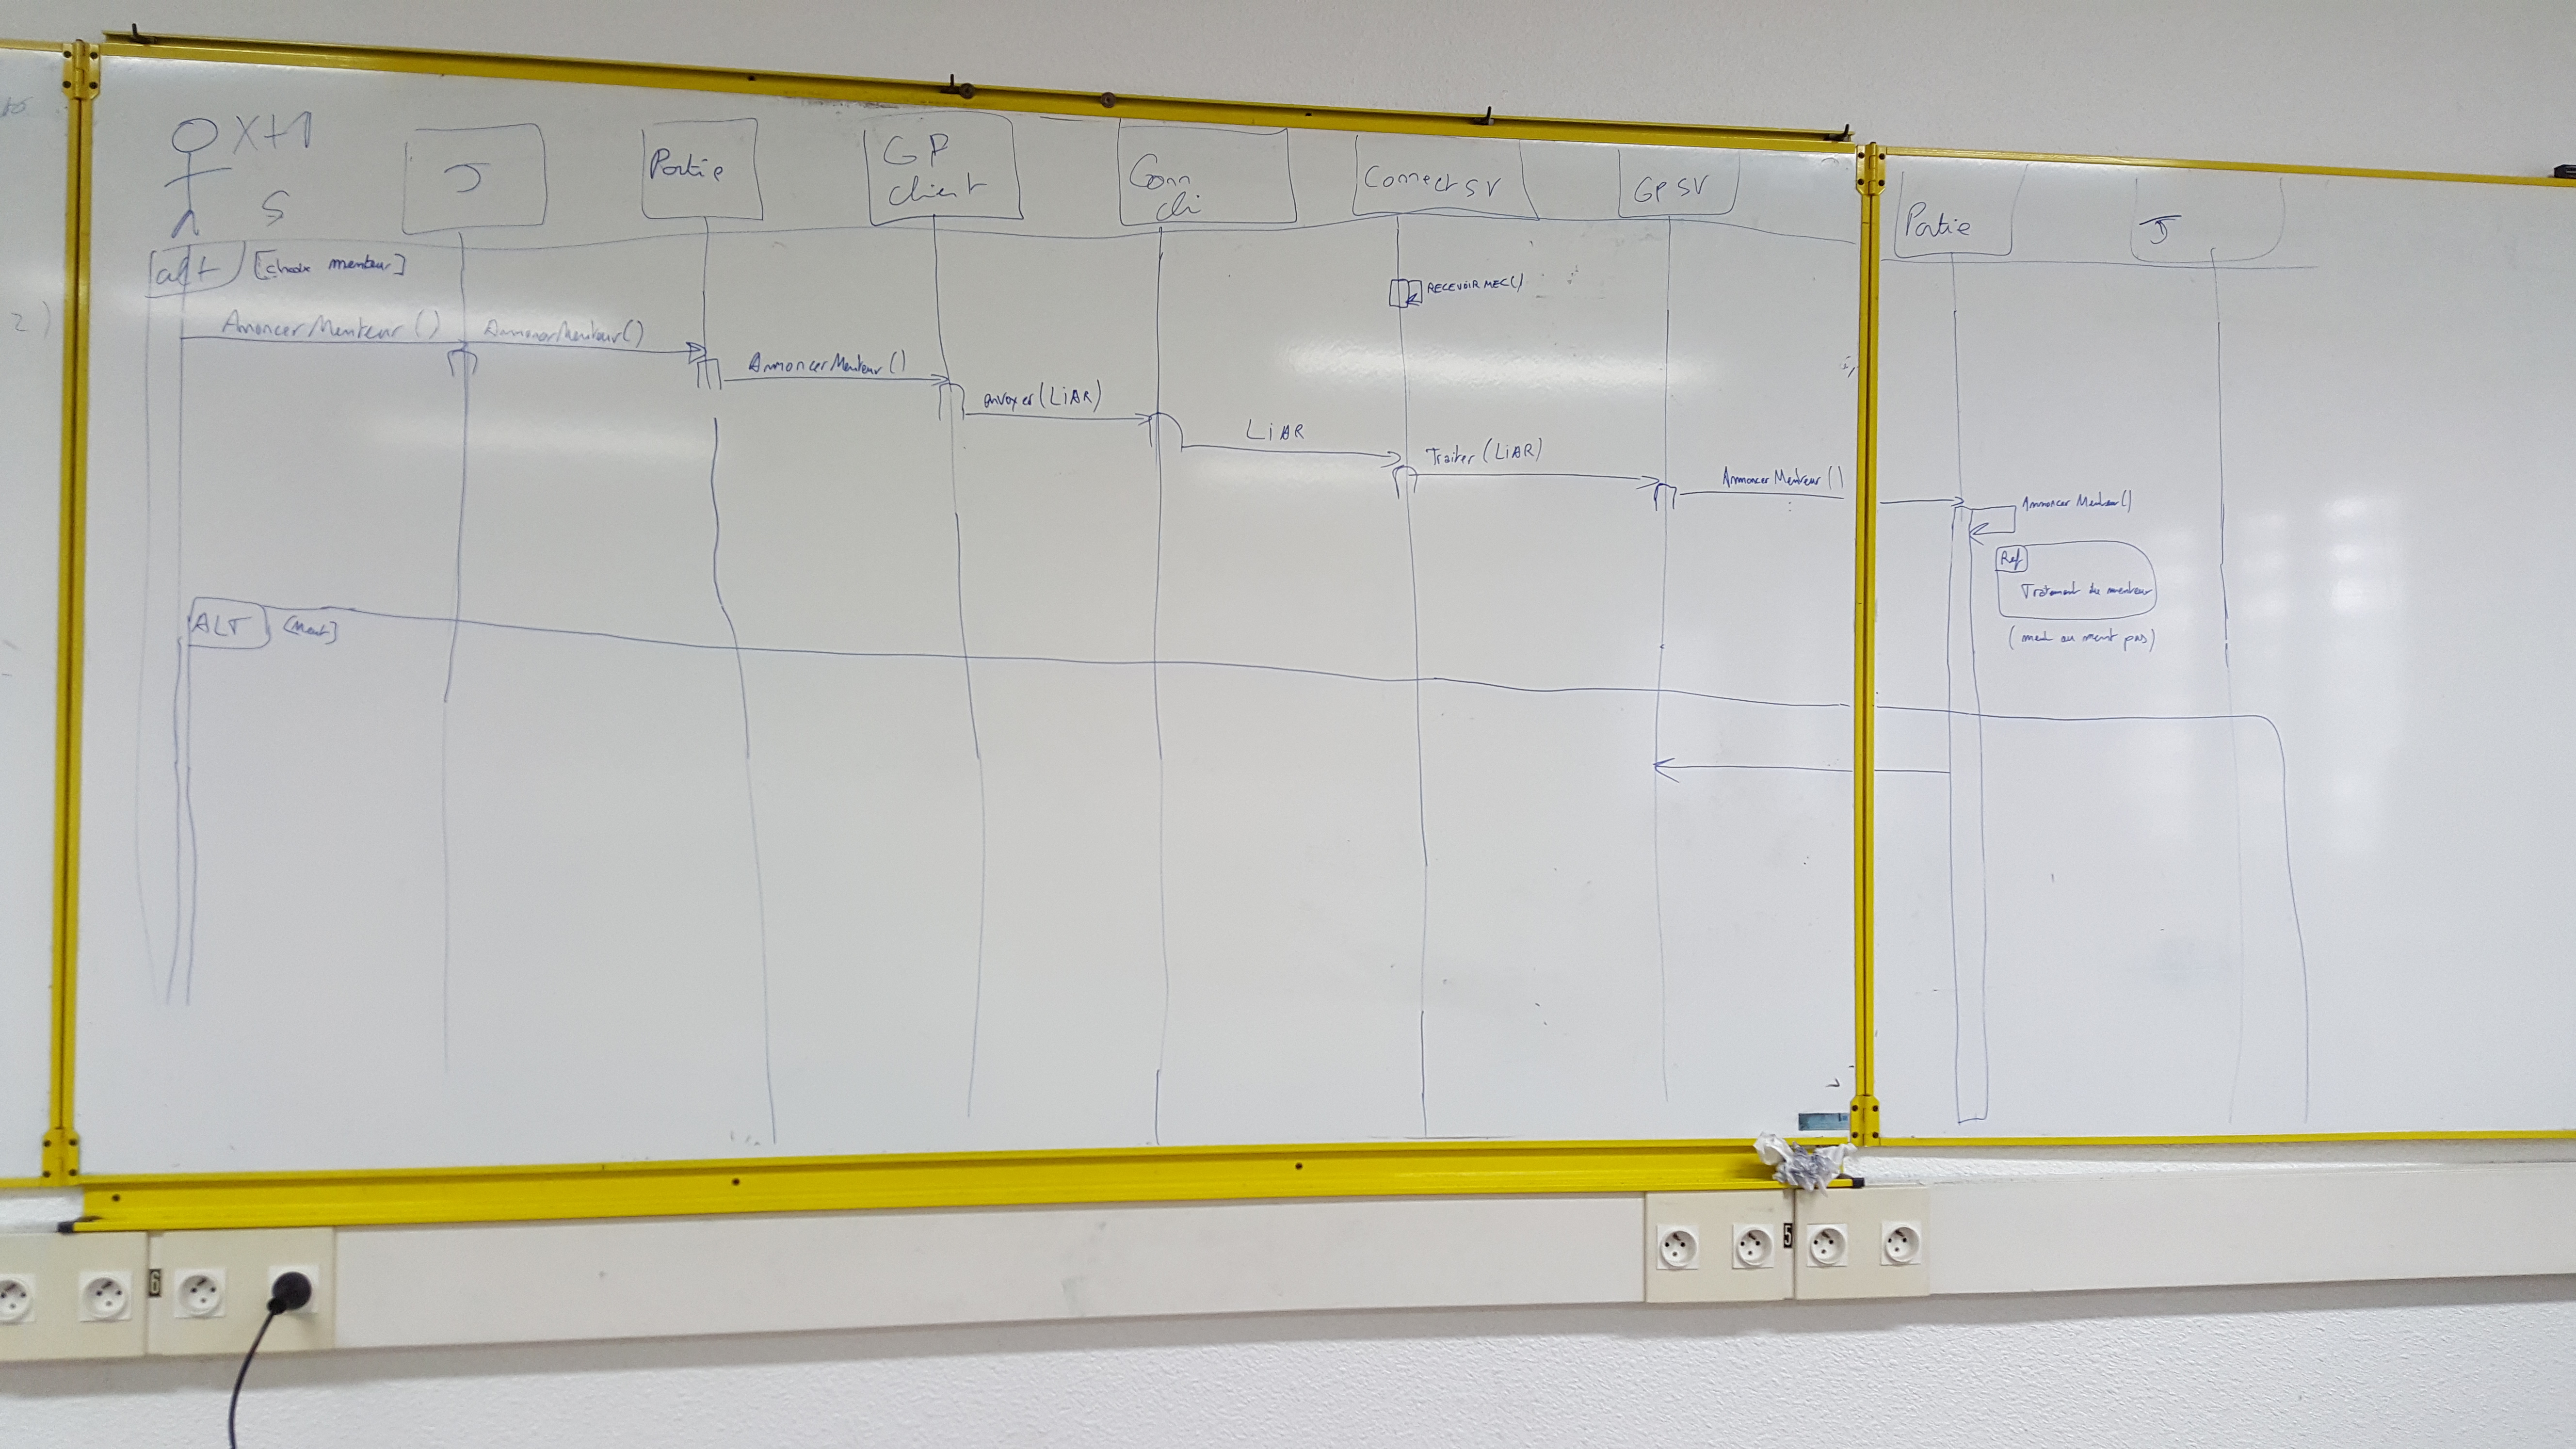 X+1
S
J
Partie
GP
client
Conn
cli
Connect SV
GP SV
Partie
J
alt [choix menteur]
RECEVOIR MEC()
2)
AnnoncerMenteur()
AnnoncerMenteur()
AnnoncerMenteur()
envoyer(LiAR)
LiAR
Traiter (LiAR)
AnnoncerMenteur()
Annoncer Menteur()
Ref
Traitement du menteur
(ment ou ment pas)
ALT [Ment]
6
5